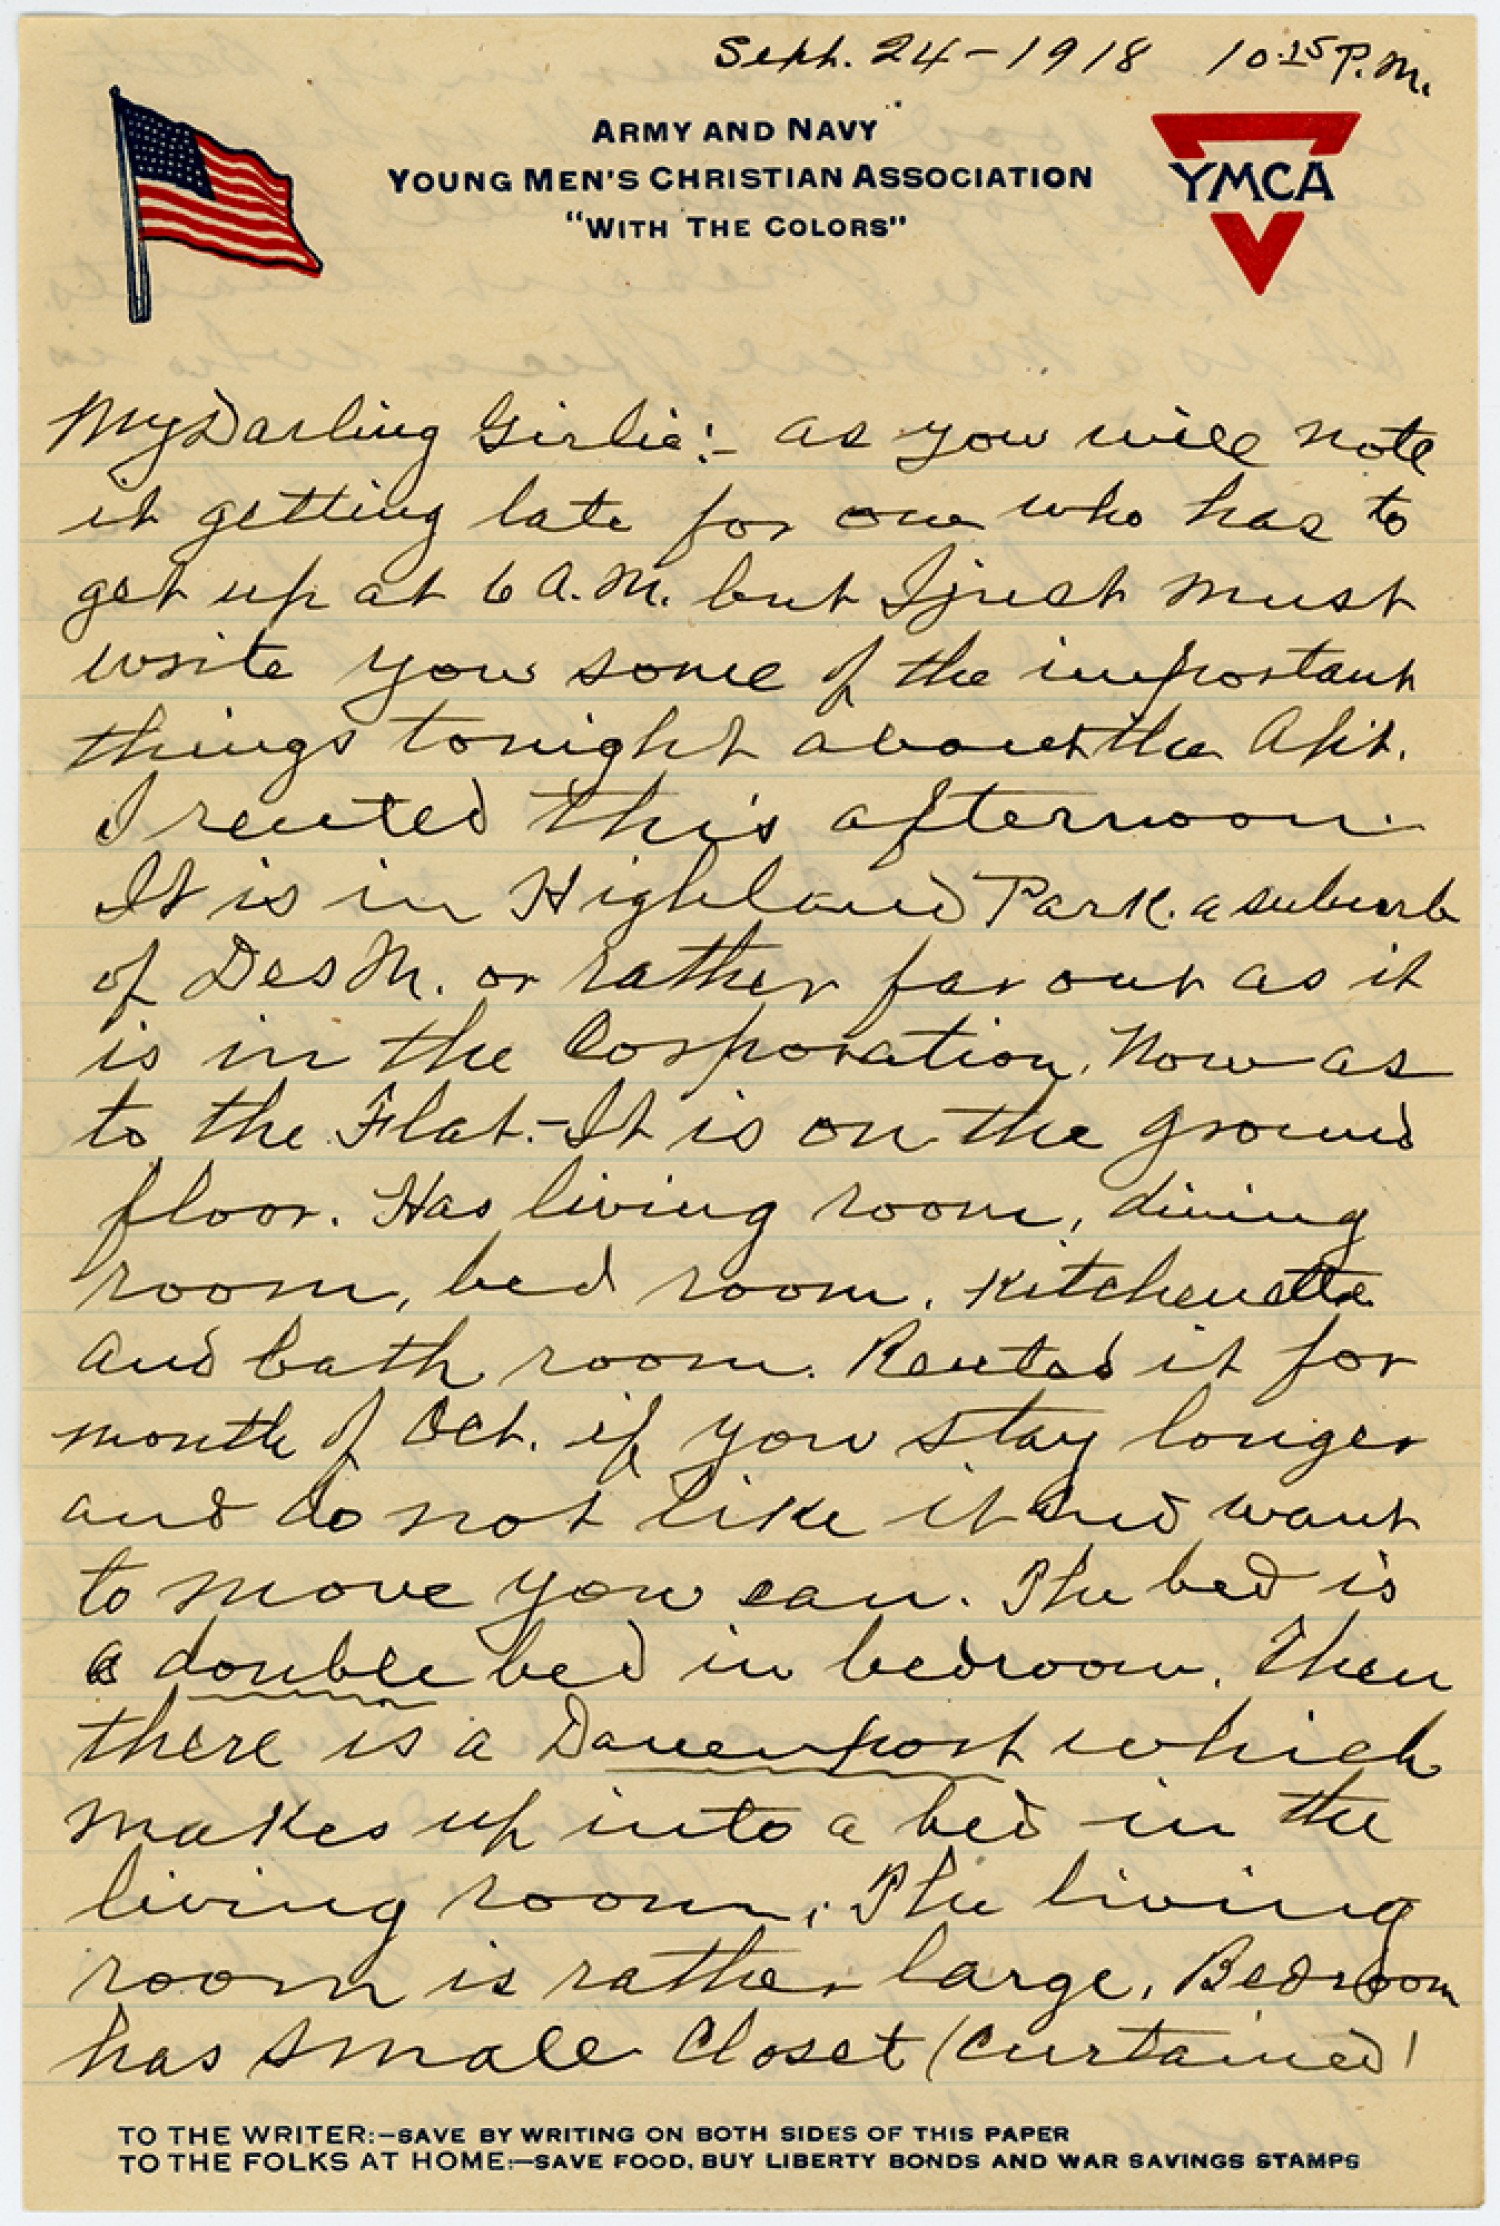 Sept. 24-1918 10:15 P.M.
ARMY AND NAVY
YOUNG MEN'S CHRISTIAN ASSOCIATION
"WITH THE COLORS"
YMCA
My Darling Girlie:- as you will note
it getting late for one who has to
get up at 6 A.M. but I just must
write you some of the important
things tonight about the Apt.
I rented this afternoon.
It is in Highland Park. a suburb
of Des M. or rather far out as it
is in the Corporation. Now as
to the Flat.-It is on the ground
floor. Has living room, dining
room, bed room, Kitchenette
and bath room. Rented it for
month of Oct. if you stay longer
and do not like it and want
to move you can. The bed is
a double bed in bedroom. Then
there is a Davenport which
makes up into a bed in the
living room. The living
room is rather large. Bedroom
has small closet (curtained)
TO THE WRITER:-SAVE BY WRITING ON BOTH SIDES OF THIS PAPER
TO THE FOLKS AT HOME:-SAVE FOOD, BUY LIBERTY BONDS AND WAR SAVINGS STAMPS